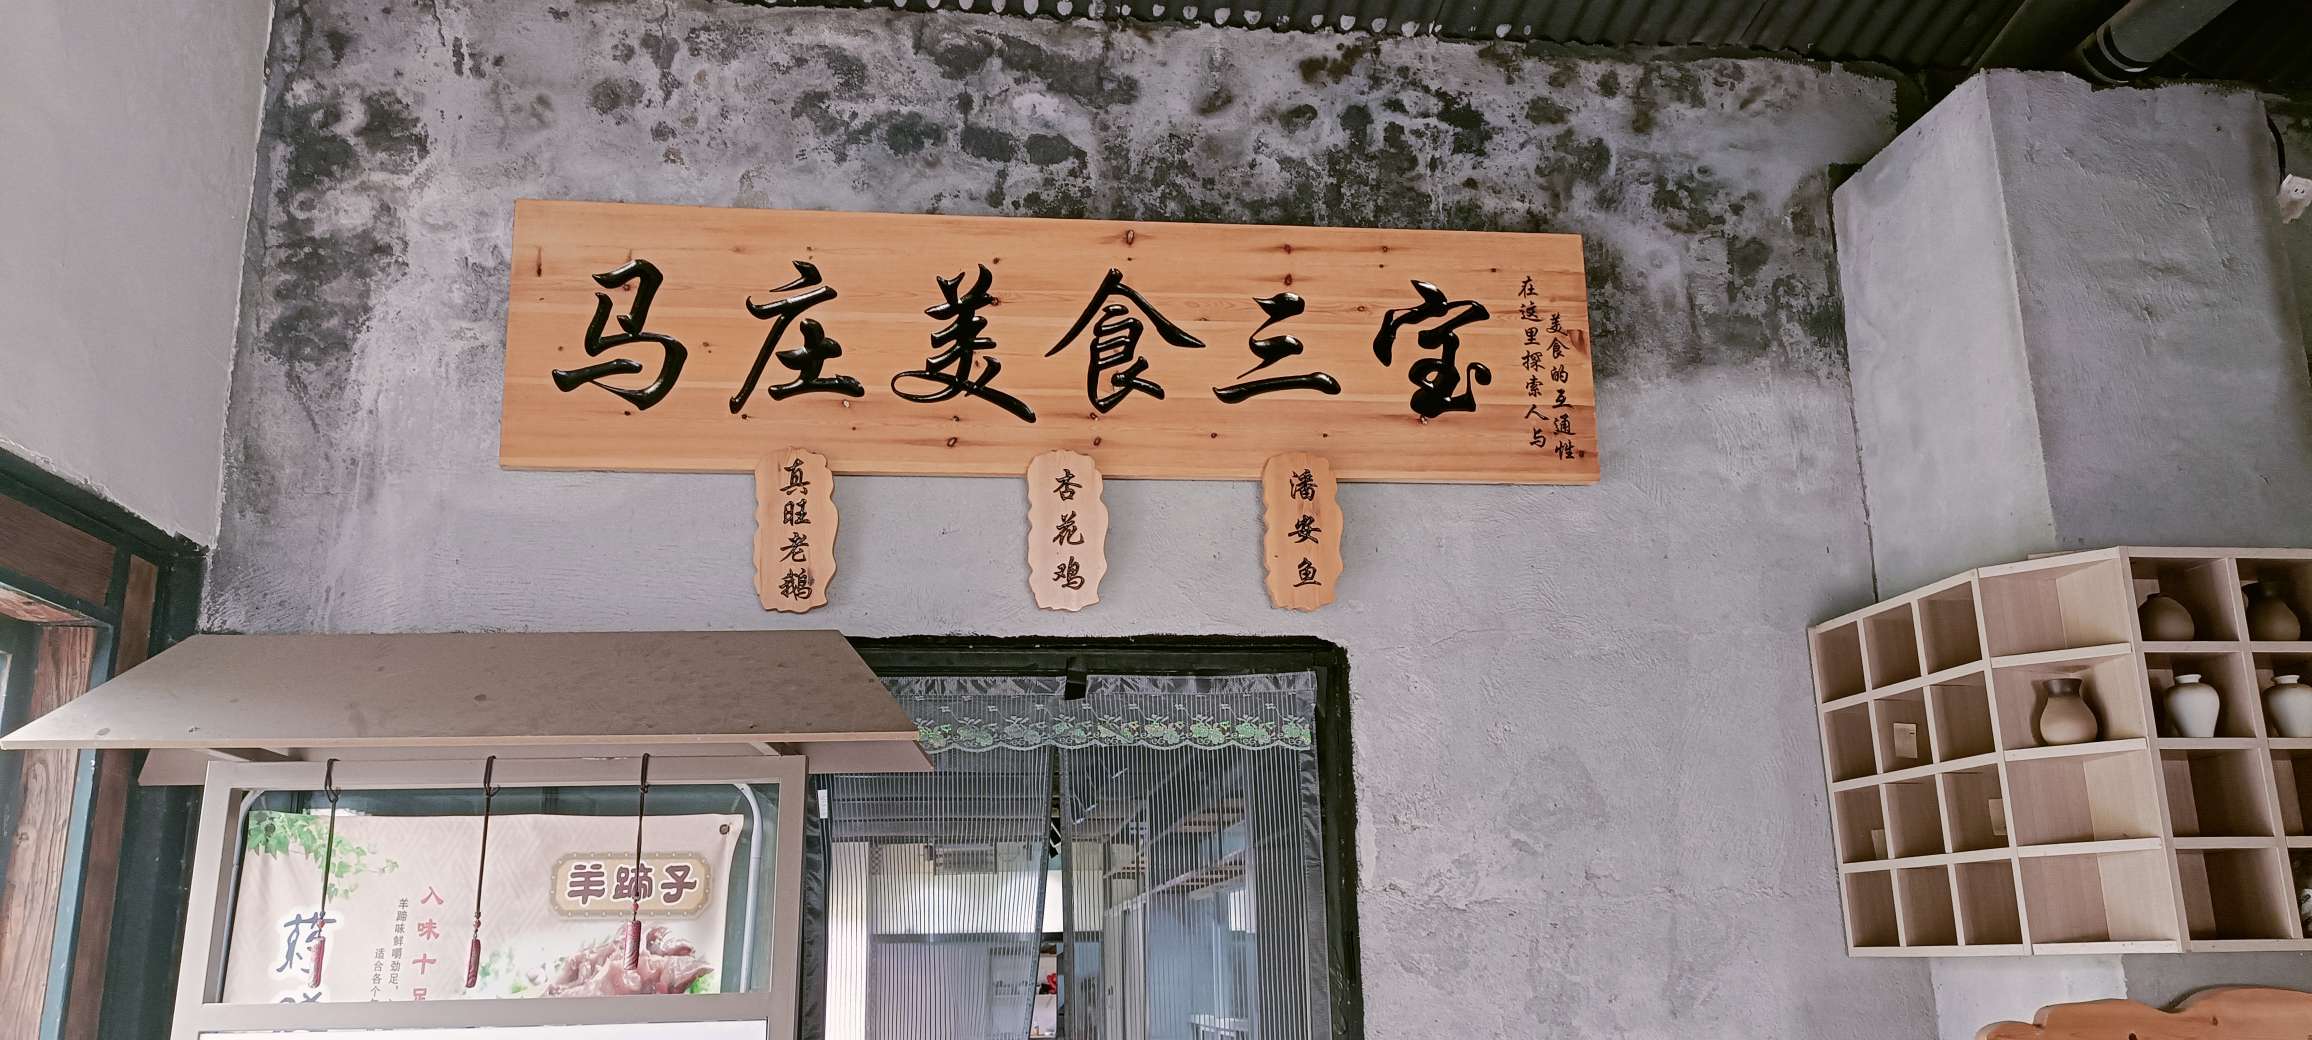 马庄美食三宝
在这里探索人与
美食的互通性。
真旺老鹅
杏花鸡
潘安鱼
羊蹄子
入味十足
羊蹄味鲜嚼劲足，
适合各个